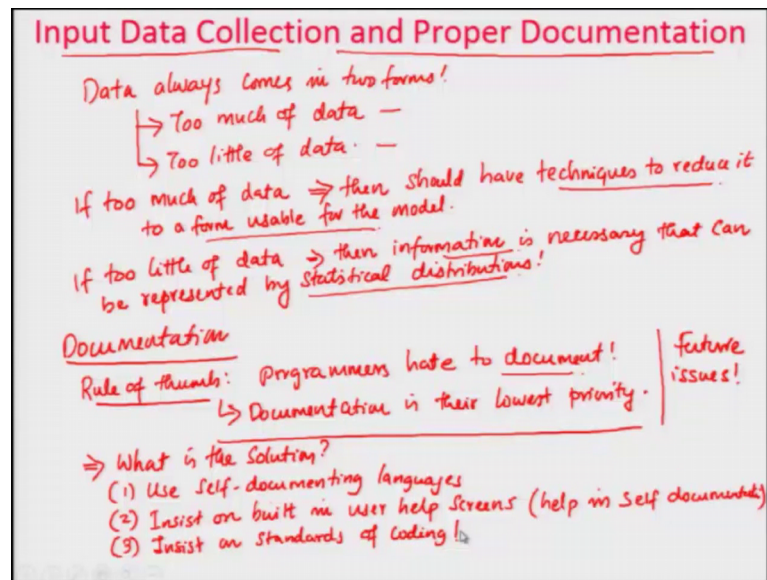 Input Data Collection and Proper Documentation
Data always comes in two forms!
↳ Too much of data —
↳ Too little of data. —
If too much of data ⇒ then should have techniques to reduce it
to a form usable for the model.
If too little of data → then information is necessary that can
be represented by statistical distributions!
Documentation
Rule of thumb: programmers hate to document!
↳ Documentation is their lowest priority.
future
issues!
⇒ What is the solution?
(1) Use self-documenting languages
(2) Insist on built in user help screens (help in self
(3) Insist on standards of coding!